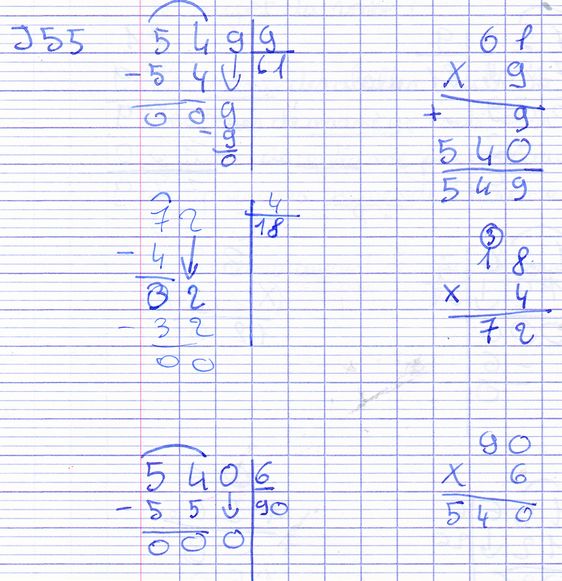 J55
5 4 9 | 9
- 5 4 ↓ | 61
0 0 9
- 9
0
6 1
X 9
+ 9
5 4 0
5 4 9
7 2 | 4
- 4 ↓ | 18
3 2
- 3 2
0 0
3
1 8
X 4
7 2
5 4 0 | 6
- 5 5 ↓ | 90
0 0 0
9 0
X 6
5 4 0